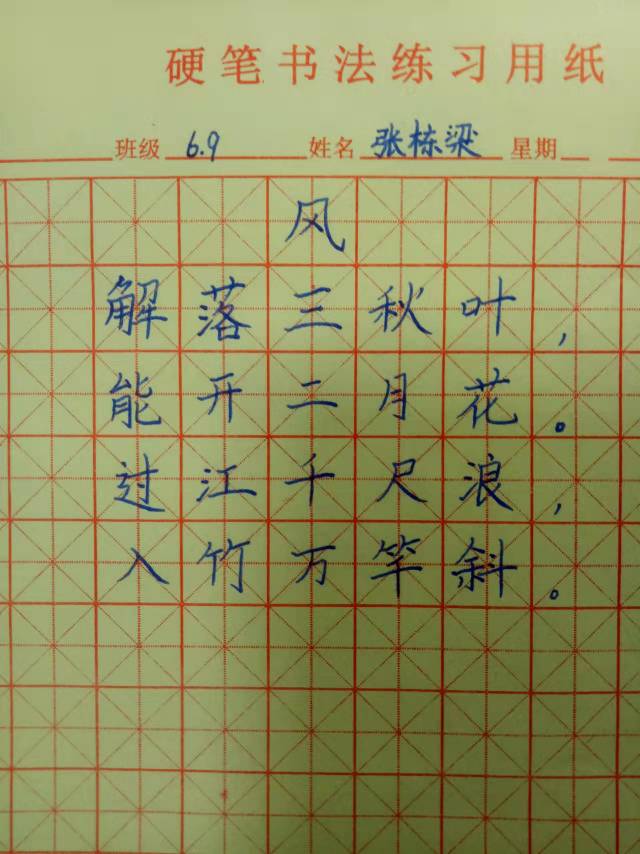 硬笔书法练习用纸
班级 6.9 姓名 张栋梁 星期
风
解落三秋叶，
能开二月花。
过江千尺浪，
入竹万竿斜。